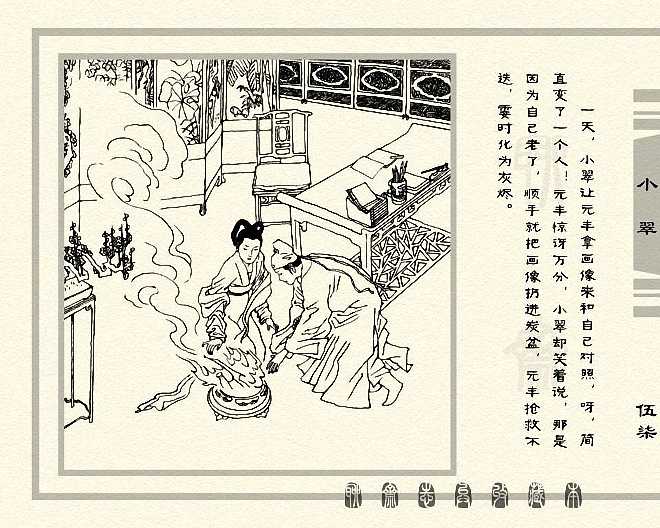 小翠
伍柒
一天，小翠让元丰拿画像来和自己对照，呀，简
直变了一个人！元丰惊讶万分，小翠却笑着说，那是
因为自己老了，顺手就把画像扔进炭盆，元丰抢救不
迭，霎时化为灰烬。
聊斋志异收藏本